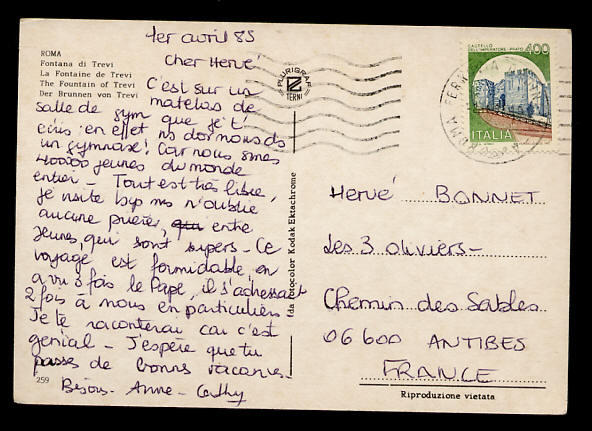 1er avril 85
Cher Hervé
ROMA
Fontana di Trevi
La Fontaine de Trevi
The Fountain of Trevi
Der Brunnen von Trevi
C'est sur un
matelas de
salle de gym que je t'
écris en effet ns dormons ds
un gymnase! Car nous smes
400000 jeunes du monde
entier - Tout est très libre,
je visite bcp ms n'oublie
aucune prière, qui entre
jeunes, qui sont supers - Ce
voyage est formidable, on
a vu 3 fois le Pape, il s'adressait
2 fois à nous en particulier
Je te raconterai car c'est
genial - J'espère que tu
passes de bonnes vacances.
Bisous - Anne - Cathy
259
PLURIGRAF
TERNI
fda fotocolor Kodak Ektachrome
CASTELLO
DELL'IMPERATORE - PRATO
400
ITALIA
ROMA FERR
Hervé BONNET
Les 3 oliviers -
Chemin des Sables
06600 ANTIBES
FRANCE
Riproduzione vietata